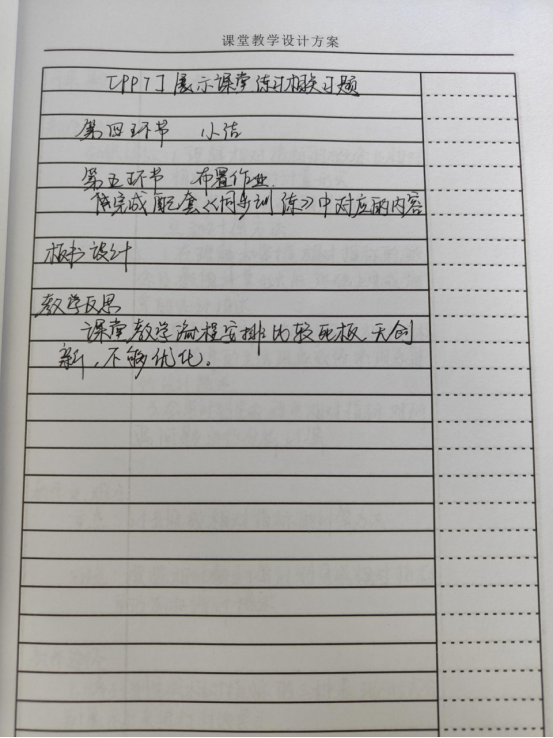 课堂教学设计方案
[PPT]展示课堂练习相关习题
第四环节 小结
第五环节 布置作业
完成配套《同步训练》中对应的内容
板书设计
教学反思
课堂教学流程安排比较死板,无创
新,不够优化。